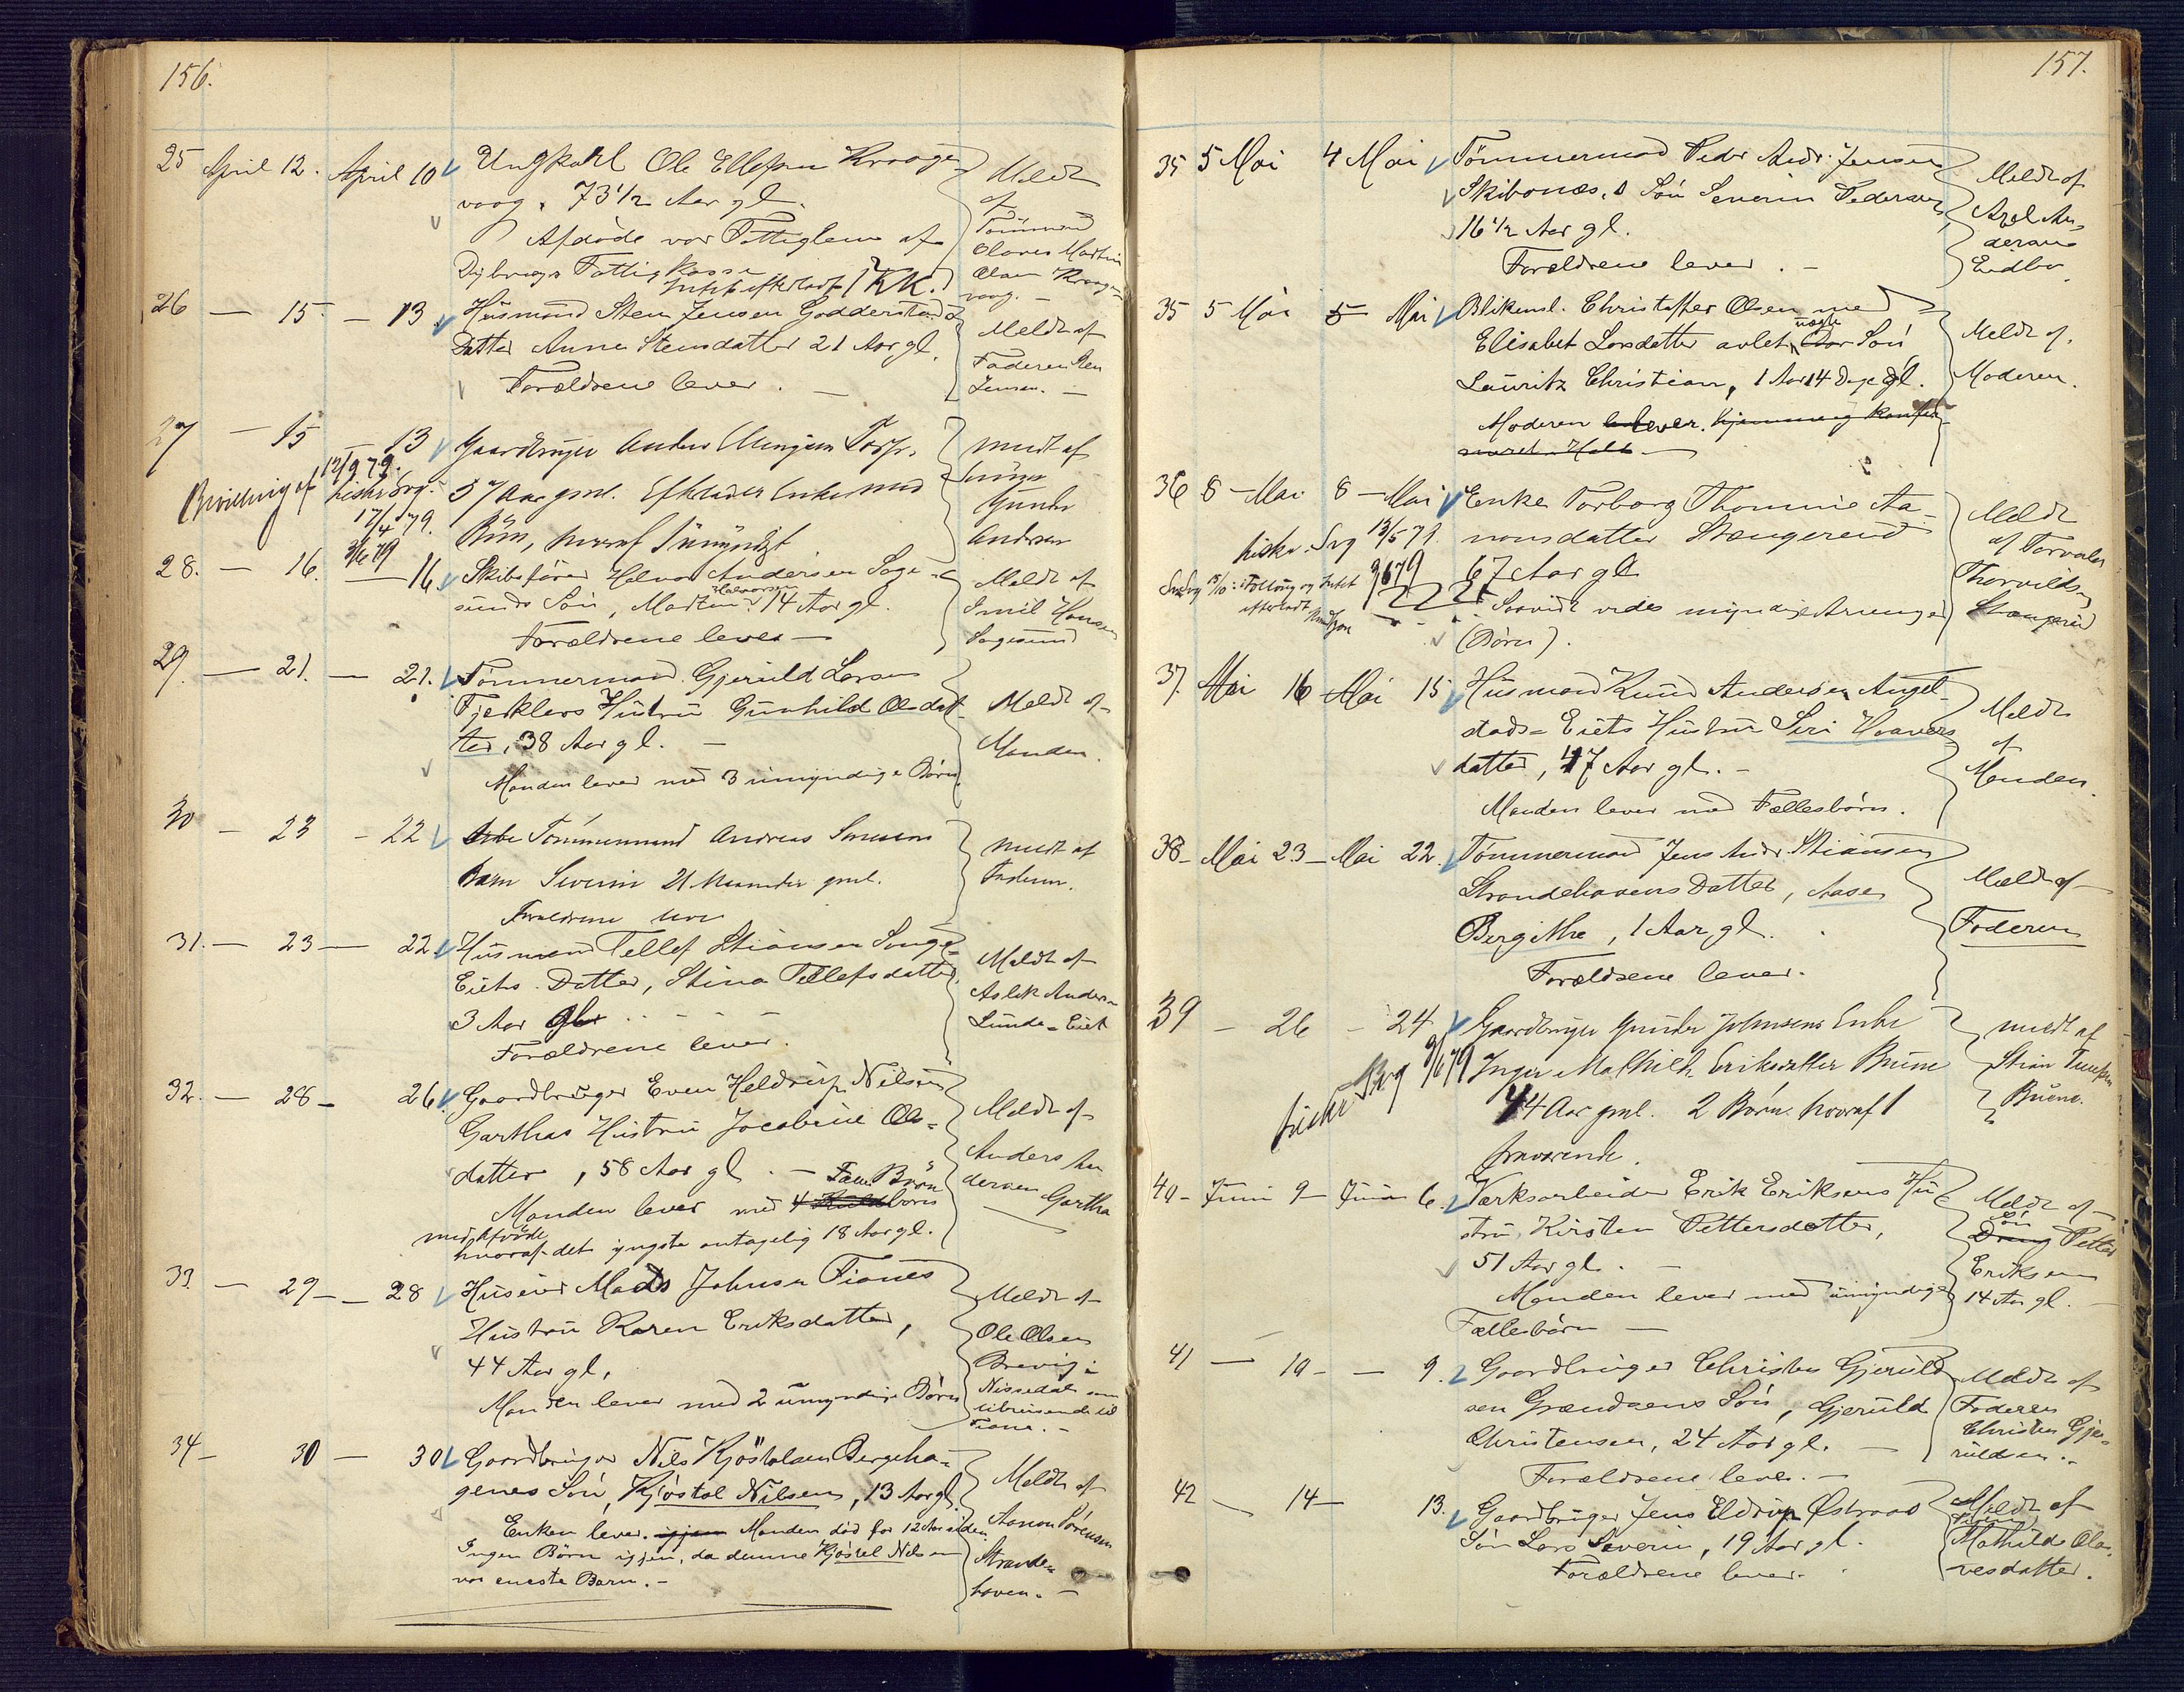 156.
25 April 12. April 10 Ungkarl Ole Ellefsen Krage-
vaag, 73 1/2 Aar gl.
Afdöde var Fattiglem af
Dybvaags Fattigkasse
Intet efterladt
Meldt
af
Tömmermd
Olaves Martin
Olsen Krage-
vaag. -
26 — 15 — 13 Husmand Sten Jensen Godderstads
Datter Anne Stensdatter 21 Aar gl.
Forældrene lever. —
Meldt af
Faderen Sten
Jensen. -
27 — 15 — 13 Gaardbruger Anders Torp,
57 Aar gml. Efterlader Enke med
Börn, hvoraf 1 umyndigt
Bevilling af 12/9 79.
17/4 79.
3/6 79
meldt af
Gunder
Andersen
28. — 16. — 16 Skibsförer Halvor Andersen Sage-
sunds Sön, Marten Halvorsen 14 Aar gl.
Forældrene lever —
Meldt af
Emil Hansen
Sagesund
29. — 21. — 21. Tömmermand Gjeruld Larsen
Fjerkleos Hustru Gunhild Olsdat-
ter, 38 Aar gl. —
Manden lever med 3 umyndige Börn.
Meldt af
Manden.
30 — 23 — 22 Tömmermand Andreas
Barn Severin 21 Maaneder gml.
Forældrene lever
meldt af
Faderen.
31. — 23 — 22 Husmand Tellef Stiansen Songe-
Eiets Datter, Stina Tellefsdatter,
3 Aar gl.
Forældrene lever.
Meldt af
Aslak Anders.
Lunde-Eiet
32. — 28 — 26. Gaardbruger Even Heldrup Nilsen
Garthas Hustru Jacobine Ols-
datter, 58 Aar gl. —
Manden lever med 4 Fælles Börn
med Afdöde
hvoraf det yngste antagelig 18 Aar gl.
Meldt af
Anders An
dersen Gartha
33. — 29 — 28 Huseier Mads Johnsen Fianes
Hustru Karen Eriksdatter,
44 Aar gl.
Manden lever med 2 umyndige Börn
Meldt af
Ole Olsen
Brevig i
Nissedal
Fiane. -
34 — 30 — 30 Gaardbruger Nils Kjöstolsen Bergeha-
genes Sön, Kjöstol Nilsen, 13 Aar gl.
Enken lever. Manden död for 12 Aar siden.
Ingen Börn igjen, da denne Kjöstel Nilsen
var eneste Barn. -
Meldt af
Aanon Sörensen
Strande-
haven. —
157.
35 5 Mai 4 Mai Tömmermand Peder Andr. Jensen
Skibsnæs, Sön Severin Pedersen,
16 1/2 Aar gl.
Forældrene lever. -
Meldt af
Axel An-
dersen
Eidbo
35 5 Mai 5 Mai Blikensl. Christoffer Olsen med
Elisabet Larsdatter avlet uægte Sön
Lauritz Christian, 1 Aar 14 Dage gl.
Moderen lever. hjemme og konfir
meret Holt —
Meldt af
Moderen.
36 8 Mai 8 Mai Enke Torborg Thomine Aa-
nonsdatter Stangerend
67 Aar gl.
Saavidt vides myndige Arvinger
(Börn).
13/5 79.
efterladt
Meldt
af Torvald
Thorvalds.
Stangerend
37. Mai 16 Mai 15 Husmand Knud Andersen Angel-
stads-Eiets Hustru Siri Haavors
datter, 47 Aar gl. -
Manden lever med Fællesbörn.
Meldt
af
Manden.
38 - Mai 23 - Mai 22. Tömmermand Jens Andr. Stiansen
Strandehavens Datter, Aase
Bergithe, 1 Aar gl.
Forældrene lever.
Meldt af
Faderen
39 — 26 — 24 Gaardbruger Gunder Johnsens Enke
Inger Mathilde Eriksdatter Buene
44 Aar gml. 2 Börn hvoraf 1
fraværende.
meldt af
Stian
Buene.
40 - Juni 9 - Juni 6. Værksarbeider Erik Eriksens Hu
stru, Kirsten Pettersdatter,
51 Aar gl. -
Manden lever med umyndige
Fællesbörn —
Meldt af
Sön
Dreng Petter
Eriksen
14 Aar gl. —
41 — 10 — 9. Gaardbruger Christen Gjeruld
sen Grændsens Sön, Gjeruld
Christensen, 24 Aar gl. —
Forældrene lever. -
Meldt af
Faderen
Christen Gje-
ruldsen. -
42 — 14 — 13. Gaardbruger Jens Eldrup Østraad
Sön Lars Severin, 19 Aar gl.
Forældrene lever.
Meldt af
Mathilde Ola-
vesdatter.